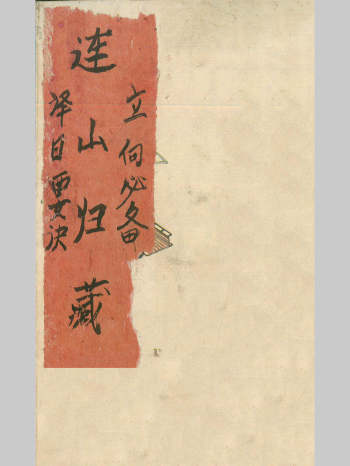 立向必备
连山归藏
择日要决